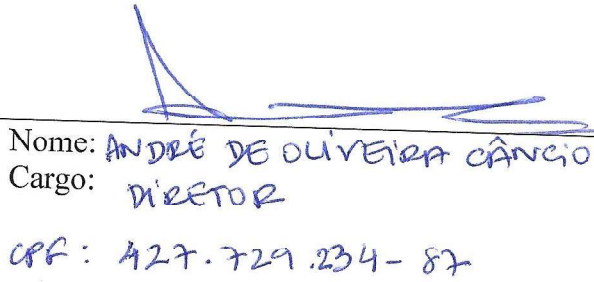 Nome: ANDRÉ DE OLIVEIRA CÂNCIO
Cargo: DIRETOR
CPF: 427.729.234-87